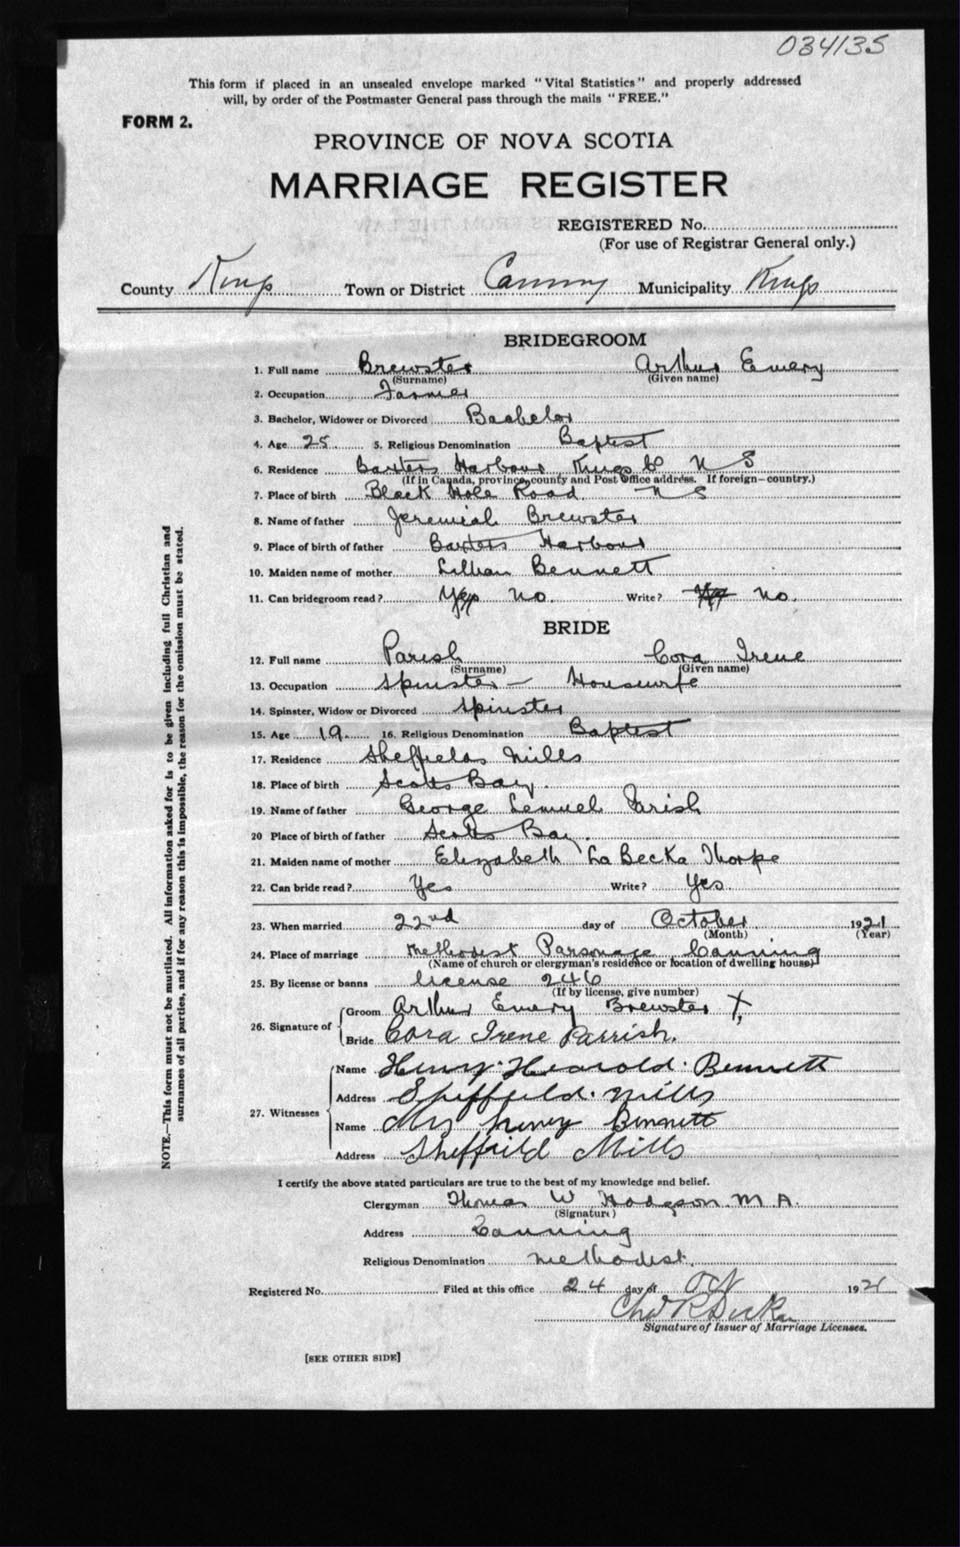 034135
This form if placed in an unsealed envelope marked "Vital Statistics" and properly addressed
will, by order of the Postmaster General pass through the mails "FREE."
FORM 2.
PROVINCE OF NOVA SCOTIA
MARRIAGE REGISTER
REGISTERED No.
(For use of Registrar General only.)
County Kings Town or District Canning Municipality Kings
BRIDEGROOM
1. Full name Brewster Arthur Emery
(Surname) (Given name)
2. Occupation Farmer
3. Bachelor, Widower or Divorced Bachelor
4. Age 25 5. Religious Denomination Baptist
6. Residence Baxters Harbour Kings Co N S
(If in Canada, province, county and Post Office address. If foreign—country.)
7. Place of birth Black Hole Road N S
8. Name of father Jeremiah Brewster
9. Place of birth of father Baxters Harbour
10. Maiden name of mother Lillian Bennett
11. Can bridegroom read? Yes No. Write? No.
BRIDE
12. Full name Parish Cora Irene
(Surname) (Given name)
13. Occupation Spinster — Housewife
14. Spinster, Widow or Divorced Spinster
15. Age 19 16. Religious Denomination Baptist
17. Residence Sheffields Mills
18. Place of birth Scotts Bay.
19. Name of father George Lemuel Parish
20 Place of birth of father Scotts Bay.
21. Maiden name of mother Elizabeth LaBecka Thorpe
22. Can bride read? Yes Write? Yes.
23. When married 22nd day of October 1921
(Month) (Year)
24. Place of marriage Methodist Parsonage Canning
(Name of church or clergyman's residence or location of dwelling house)
25. By license or banns license 246
(If by license, give number)
26. Signature of Groom Arthur Emery Brewster X
Bride Cora Irene Parrish.
27. Witnesses Name Henry Hearold Bennett
Address Sheffield Mills
Name Mrs Henry Bennett
Address Sheffield Mills
I certify the above stated particulars are true to the best of my knowledge and belief.
Clergyman Thomas W Hodgson M A.
(Signature)
Address Canning
Religious Denomination Methodist.
Registered No. Filed at this office 24 day of Oct 1921
Signature of Issuer of Marriage Licenses.
[SEE OTHER SIDE]
NOTE.—This form must not be mutilated. All information asked for is to be given including full Christian and
surnames of all parties, and if for any reason this is impossible, the reason for the omission must be stated.